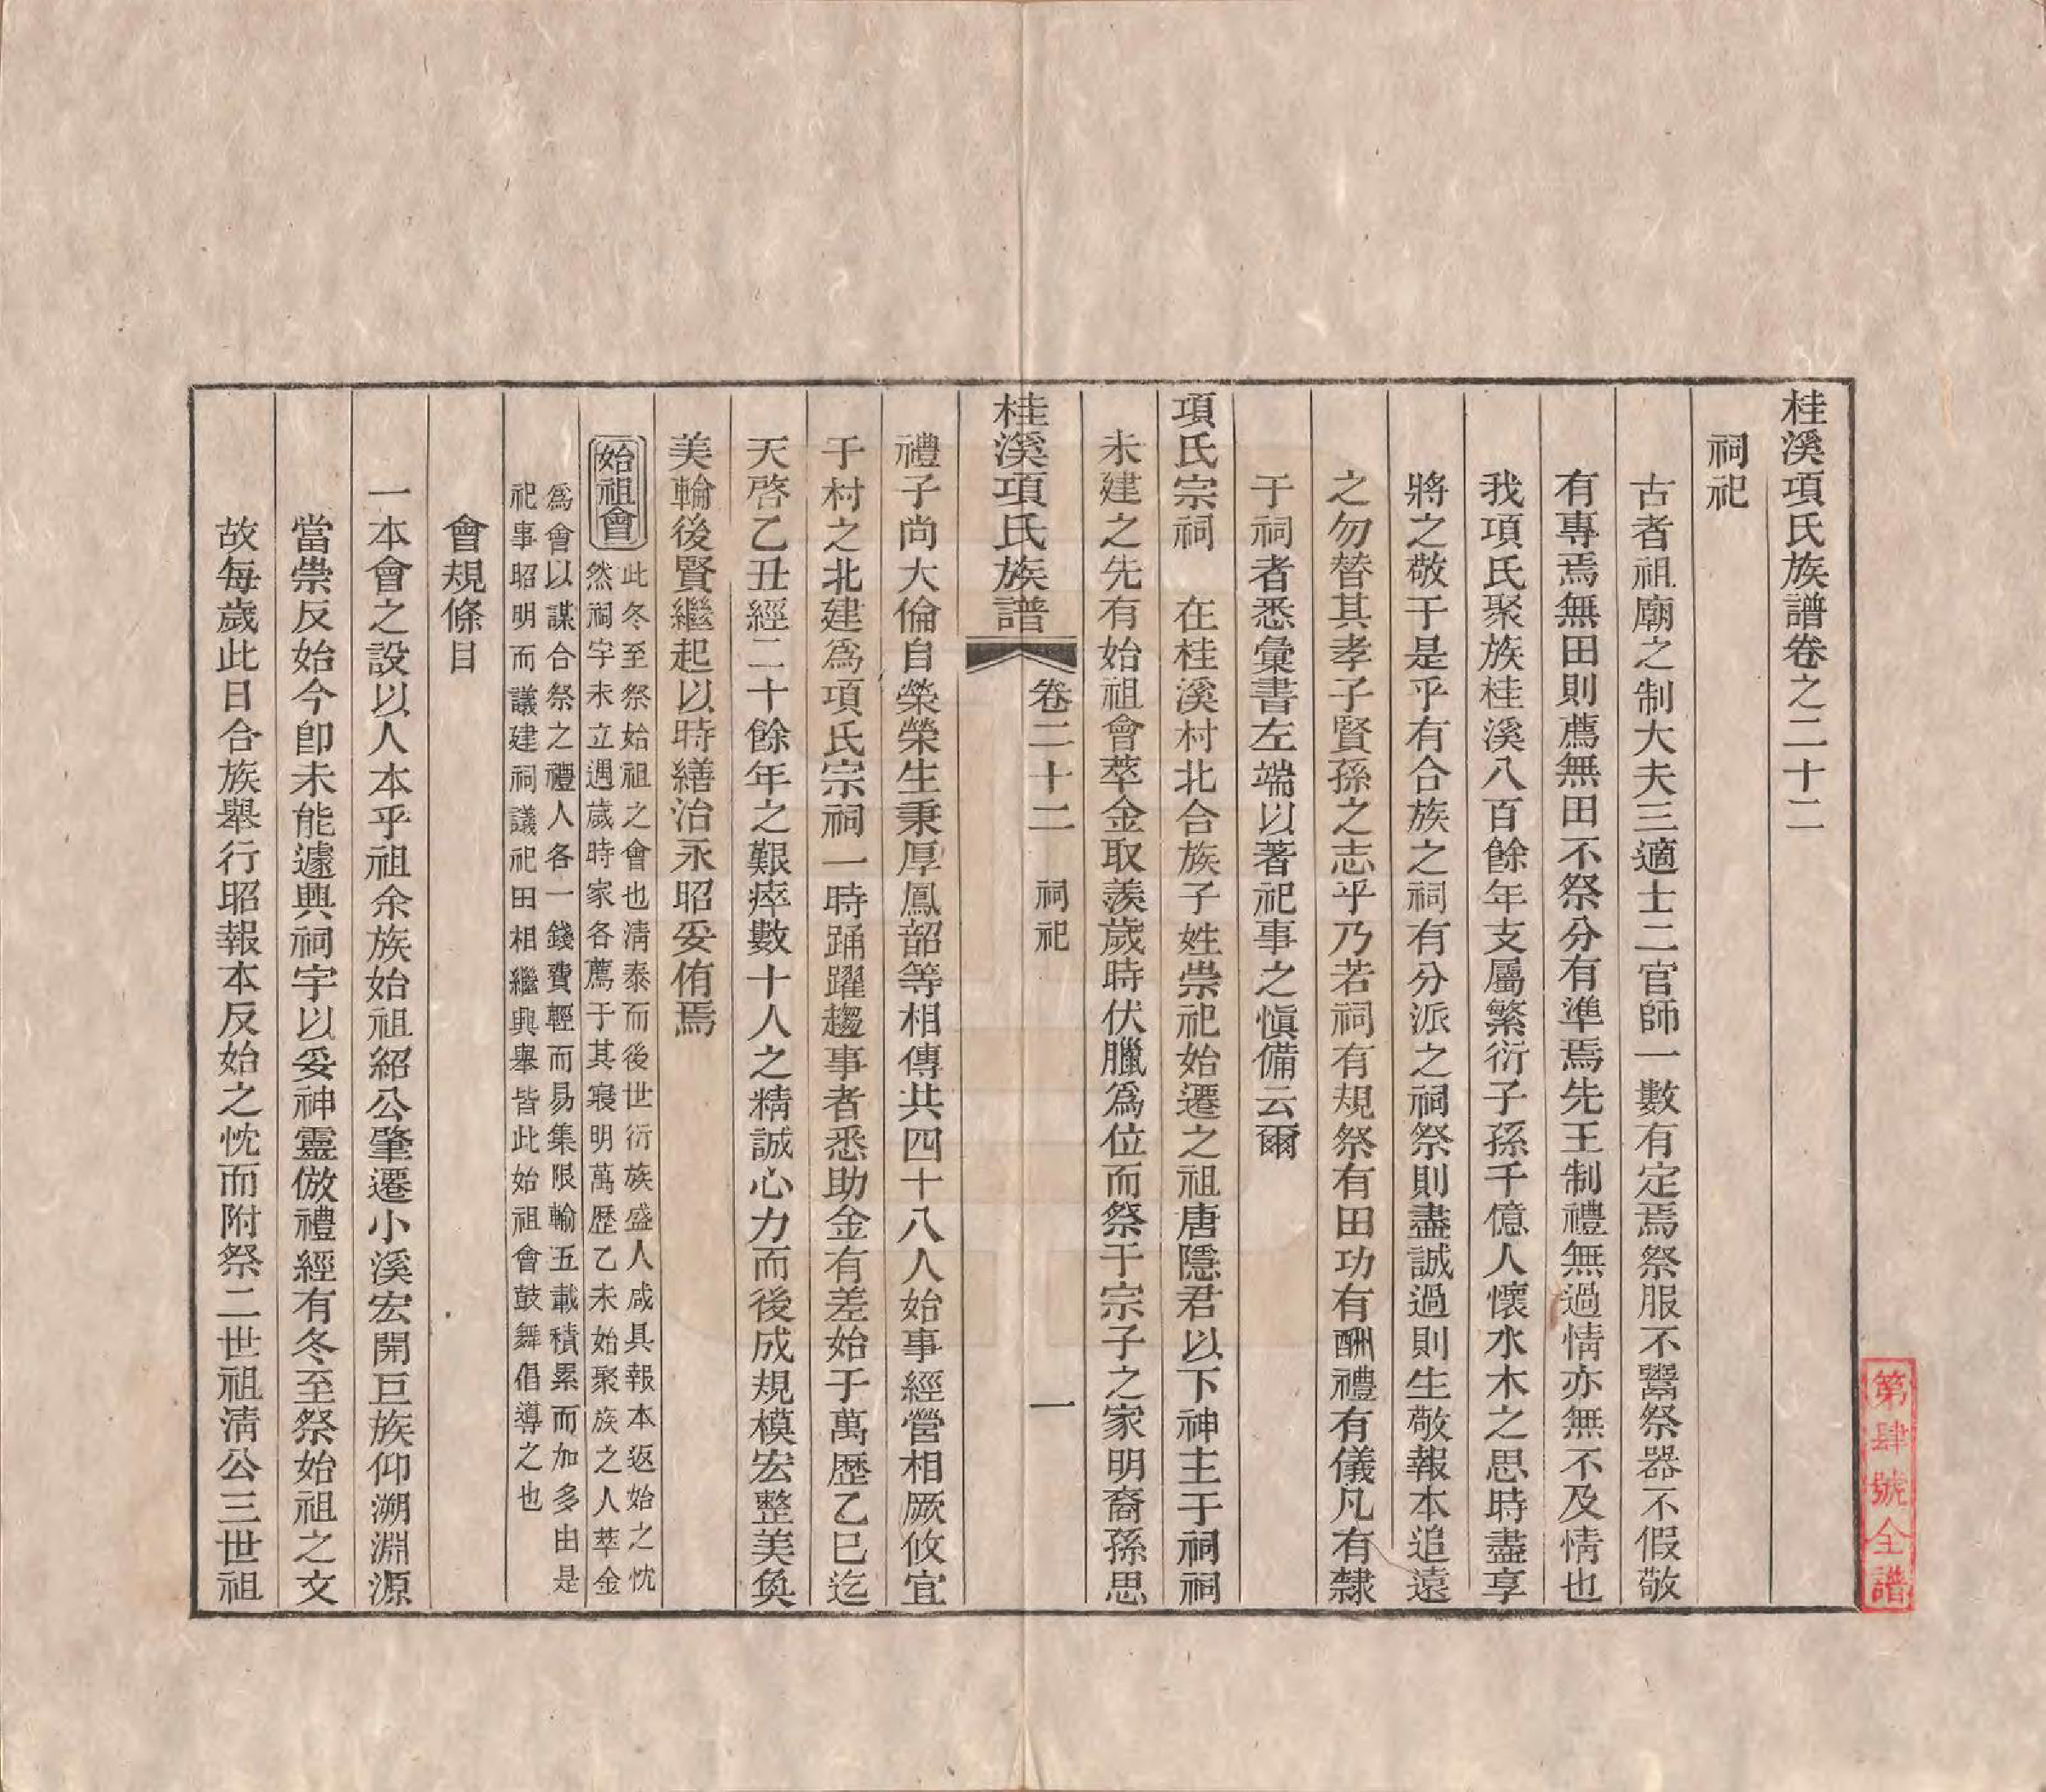 桂溪項氏族譜卷之二十二
祠祀
古者祖廟之制大夫三適士二官師一數有定焉祭服不鬻祭器不假敬
有專焉無田則薦無田不祭分有準焉先王制禮無過情亦無不及情也
我項氏聚族桂溪八百餘年支屬繁衍子孫千億人懷水木之思時盡享
將之敬于是乎有合族之祠有分派之祠祭則盡誠過則生敬報本追遠
之勿替其孝子賢孫之志乎乃若祠有規祭有田功有酬禮有儀凡有隸
于祠者悉彙書左端以著祀事之慎備云爾
項氏宗祠 在桂溪村北合族子姓崇祀始遷之祖唐隱君以下神主于祠祠
未建之先有始祖會萃金取羨歲時伏臘為位而祭于宗子之家明裔孫思
桂溪項氏族譜 卷二十二 祠祀 一
禮子尚大倫自榮榮生秉厚鳳韶等相傳共四十八人始事經營相厥攸宜
于村之北建爲項氏宗祠一時踊躍趨事者悉助金有差始于萬歷乙巳迄
天啓乙丑經二十餘年之艱瘁數十人之精誠心力而後成規模宏整美奐
美輪後賢繼起以時繕治永昭妥侑焉
始祖會
此冬至祭始祖之會也淸泰而後世衍族盛人咸具報本返始之忱
然祠宇未立遇歲時家各薦于其寢明萬歷乙未始聚族之人萃金
爲會以謀合祭之禮人各一錢費輕而易集限輸五載積累而加多由是
祀事昭明而議建祠議祀田相繼興舉皆此始祖會鼓舞倡導之也
會規條目
一本會之設以人本乎祖余族始祖紹公肇遷小溪宏開巨族仰溯淵源
當崇反始今卽未能遽興祠宇以妥神靈倣禮經有冬至祭始祖之文
故每歲此日合族舉行昭報本反始之忱而附祭二世祖淸公三世祖
第肆號全譜